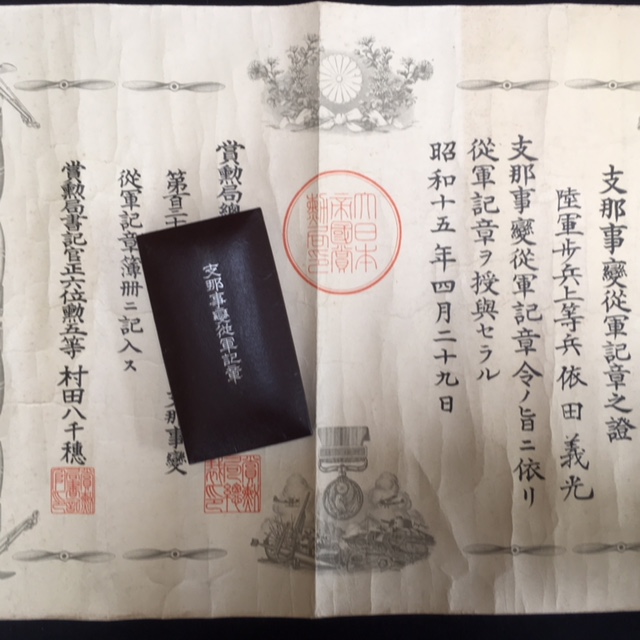 支那事變從軍記章之證
陸軍步兵上等兵依田義光
支那事變從軍記章令ノ旨ニ依リ
從軍記章ヲ授與セラル
昭和十五年四月二十九日
大日本
帝國賞
勳局印
賞勳局總
第百三十
支那事變
從軍記章簿册ニ記入ス
賞勳局書記官正六位勳五等村田八千穗
支那事變從軍記章